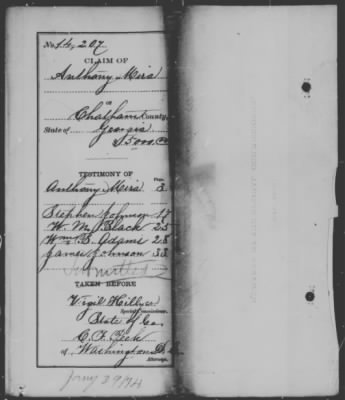 No. 14,207
CLAIM OF
Anthony Mira
in
Chatham County,
State of Georgia
$5000.00
TESTIMONY OF
Page.
Anthony Mira 3
Stephen Johnson 17
W. M. Black 25
Wm. G. Adams 28
James Johnson 33
Submitted
TAKEN BEFORE
Virgil Hillyer
Special Commissioner.
State of Ga.
C. F. Peck
of Washington D.C.
Attorney.